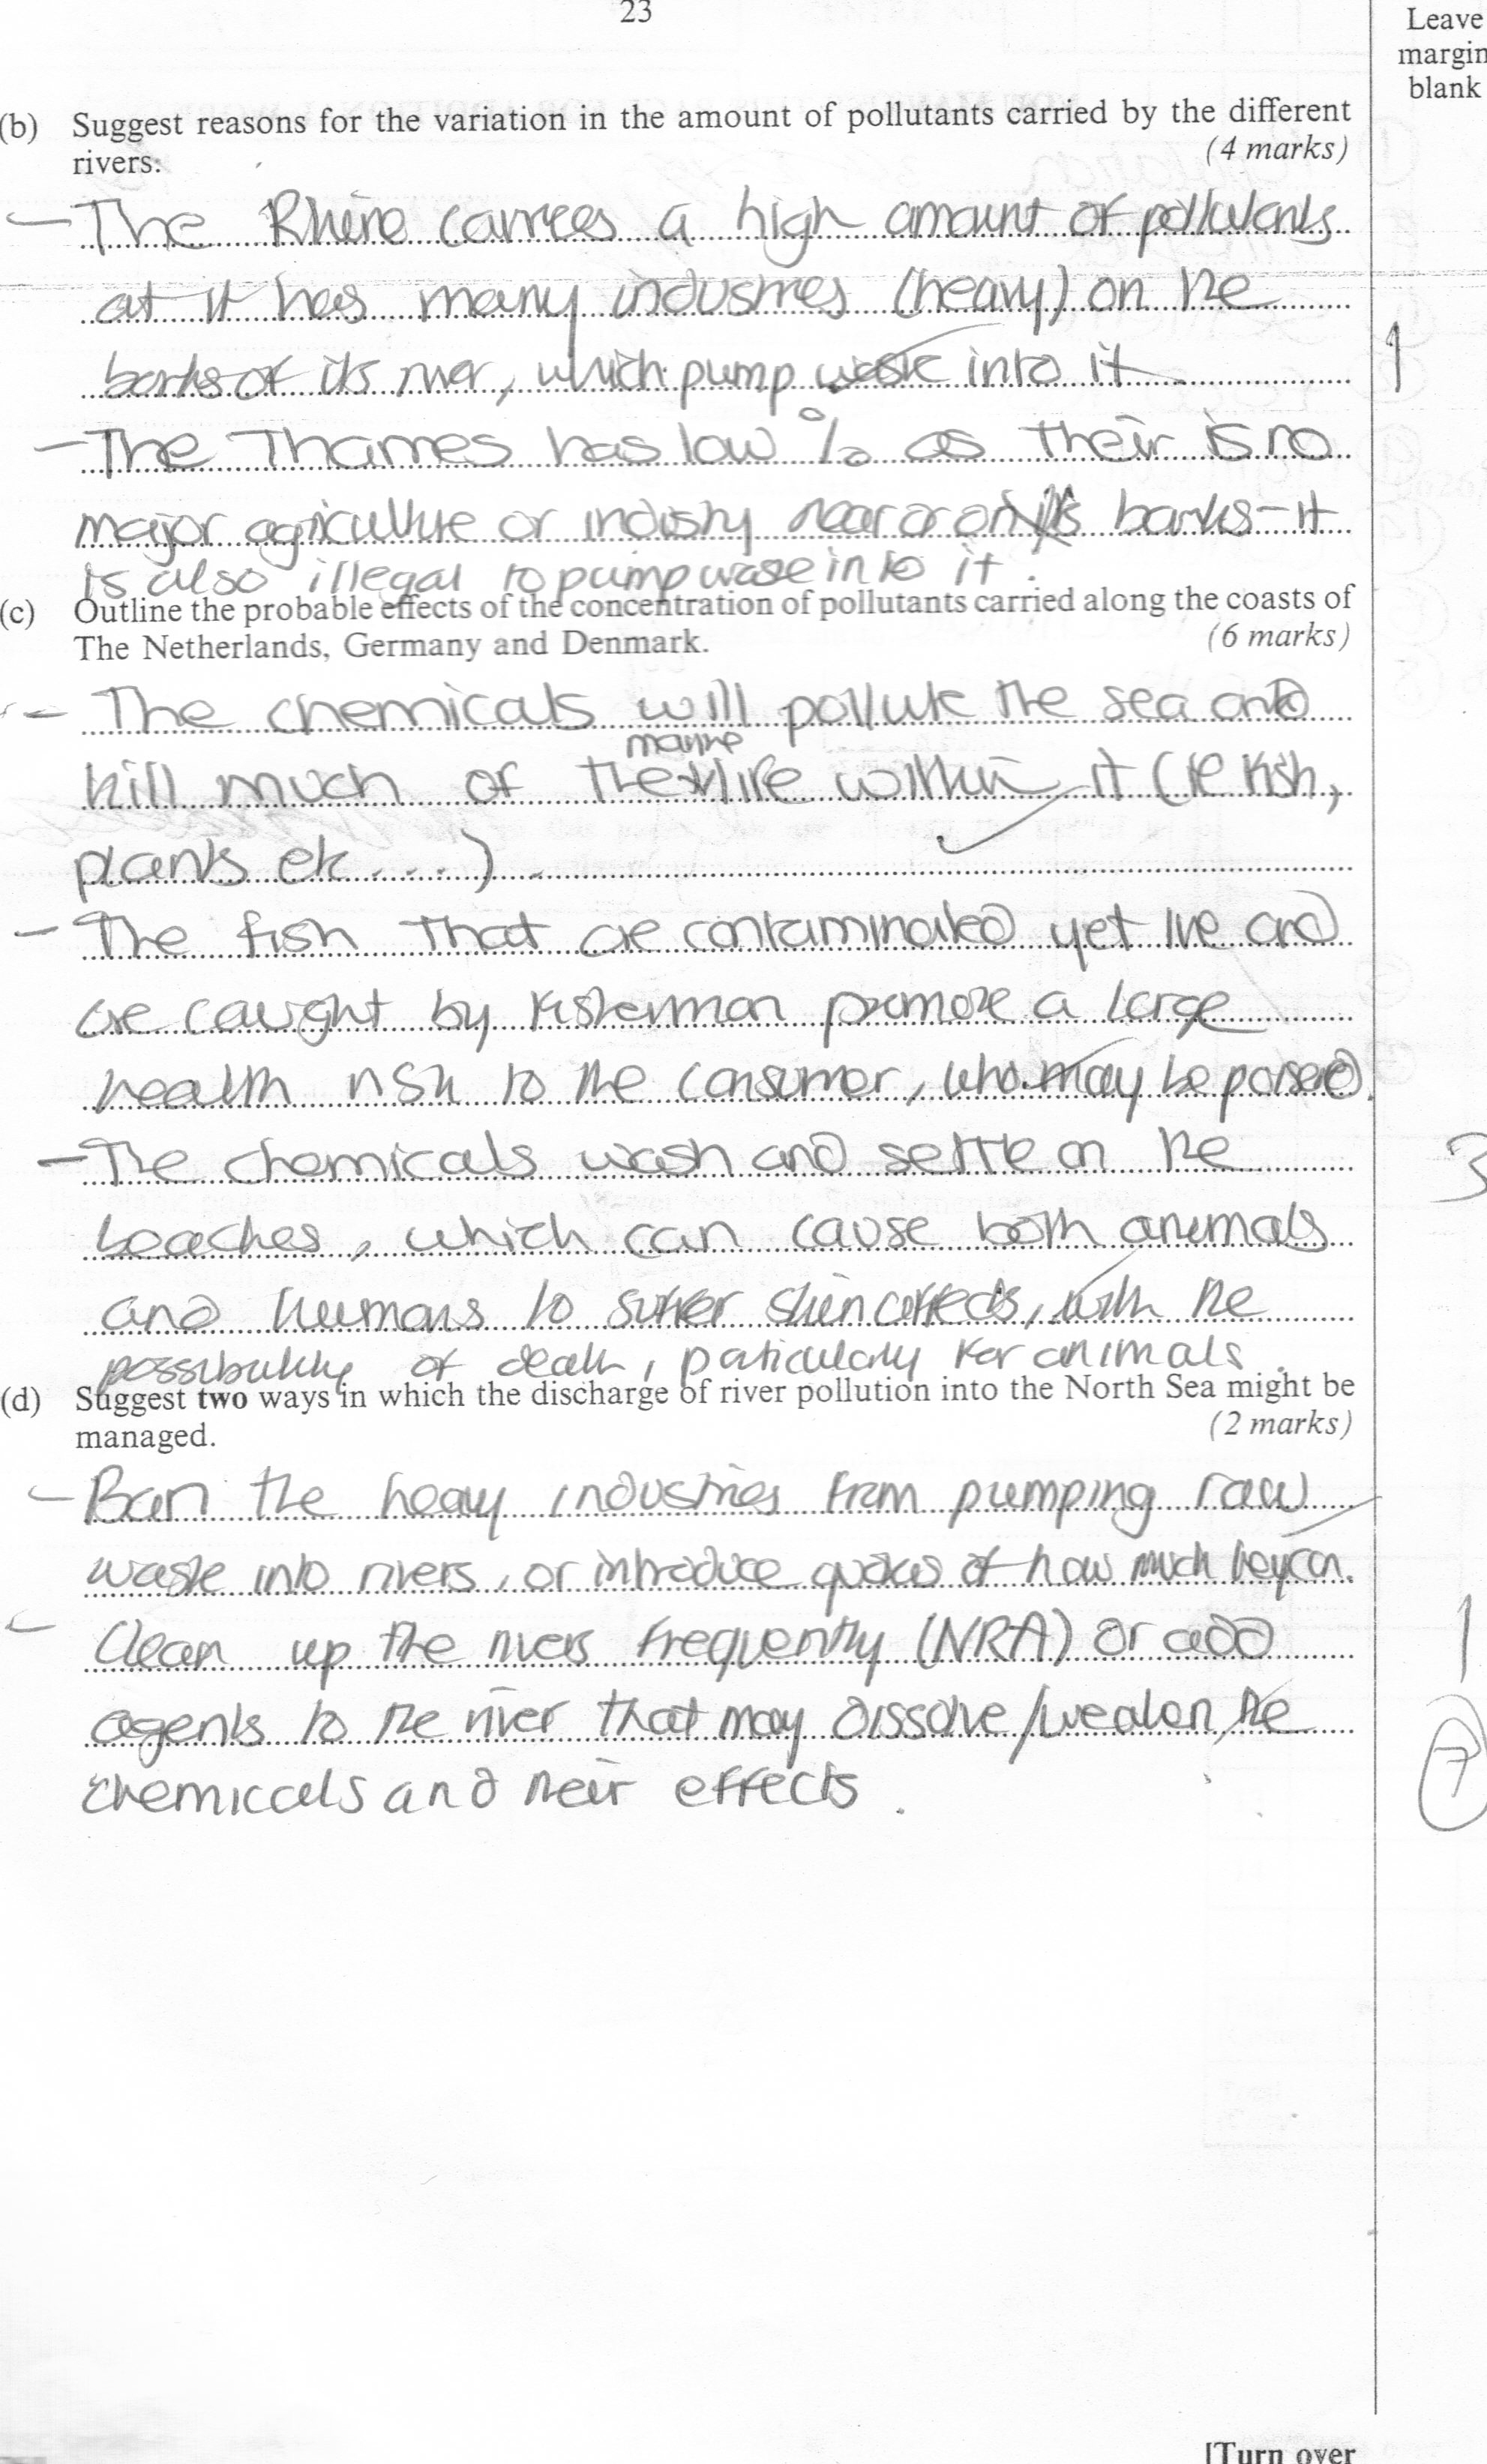 23
Leave
margin
blank
(b) Suggest reasons for the variation in the amount of pollutants carried by the different
rivers. (4 marks)
- The Rhine carries a high amount of pollutants
at it has many industries (heavy) on the
banks of its river, which pump waste into it
1
- The Thames has low % as their is no
major agriculture or industry near or on its banks - it
is also illegal to pump wase into it.
(c) Outline the probable effects of the concentration of pollutants carried along the coasts of
The Netherlands, Germany and Denmark. (6 marks)
- The chemicals will pollute the sea and
kill much of the marine life within it (ie fish,
plants etc....).
- The fish that are contaminated yet live and
are caught by fisherman promote a large
health risk to the consumer, who may be poisened.
- The chemicals wash and settle on the
3
beaches, which can cause both animals
and humans to suffer skin effects, with the
possibility of death, paticularly for animals.
(d) Suggest two ways in which the discharge of river pollution into the North Sea might be
managed. (2 marks)
- Ban the heavy industries from pumping raw
waste into rivers, or introduce quotas of how much they can.
- Clean up the rivers frequently (NRA) or add
1
agents to the river that may dissolve/weaken the
7
chemicals and their effects.
[Turn over